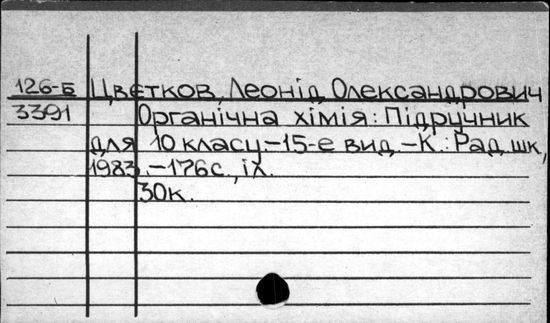 126-Б Цвєтков, Леонід Олександрович
3391 Органічна хімія: Підручник
для 10 класу.-15-е вид.-К.: Рад.шк.,
1983.-176с., іл.
30к.